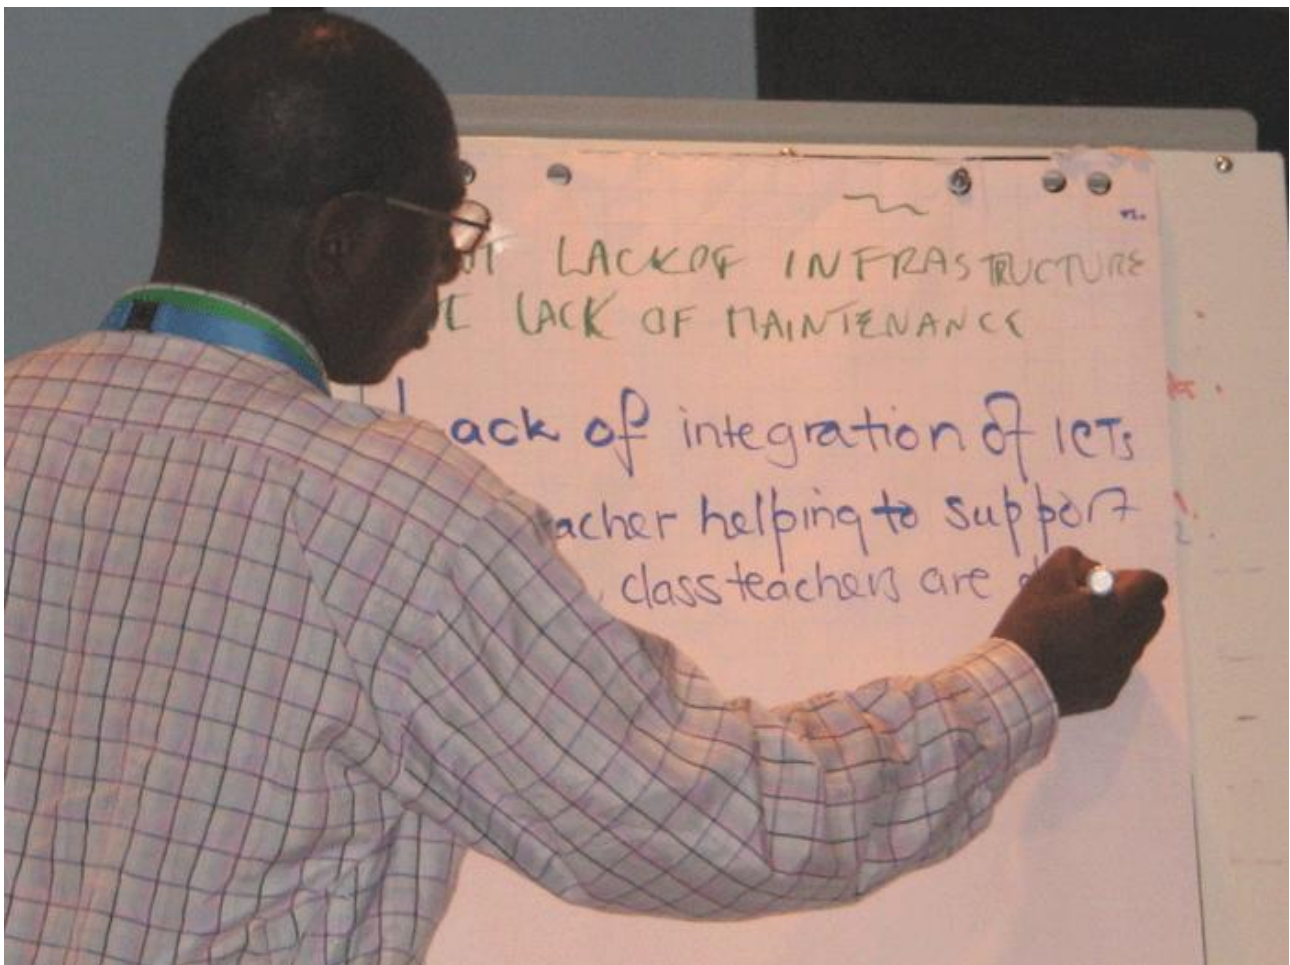 LACK OF INFRASTRUCTURE
LACK OF MAINTENANCE
Lack of integration of ICTs
helping to support
class teachers are